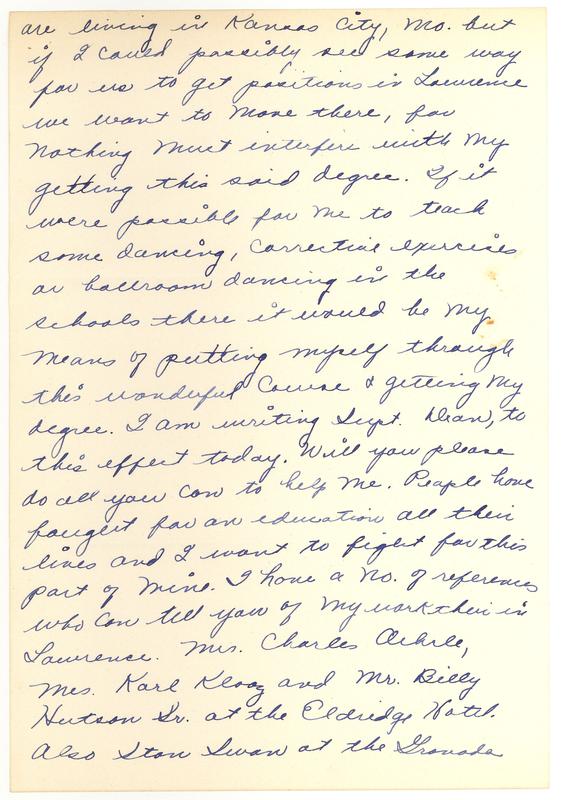 are living in Kansas City, Mo. but
if I could possibly see some way
for us to get positions in Lawrence
we want to move there, for
nothing must interfere with my
getting this said degree. If it
were possible for me to teach
some dancing, corrective exercises
or ballroom dancing in the
schools there it would be my
means of putting myself through
this wonderful Course & getting my
degree. I am writing Supt. to
this effect today. Will you please
do all you can to help me. People have
fought for an education all their
lives and I want to fight for this
part of mine. I have a no. of references
who can tell you of my work there in
Lawrence. Mrs. Charles
Mrs. Karl Klooz and Mr. Billy
Hutson Sr. at the Eldridge Hotel.
Also Stan Swan at the Granada